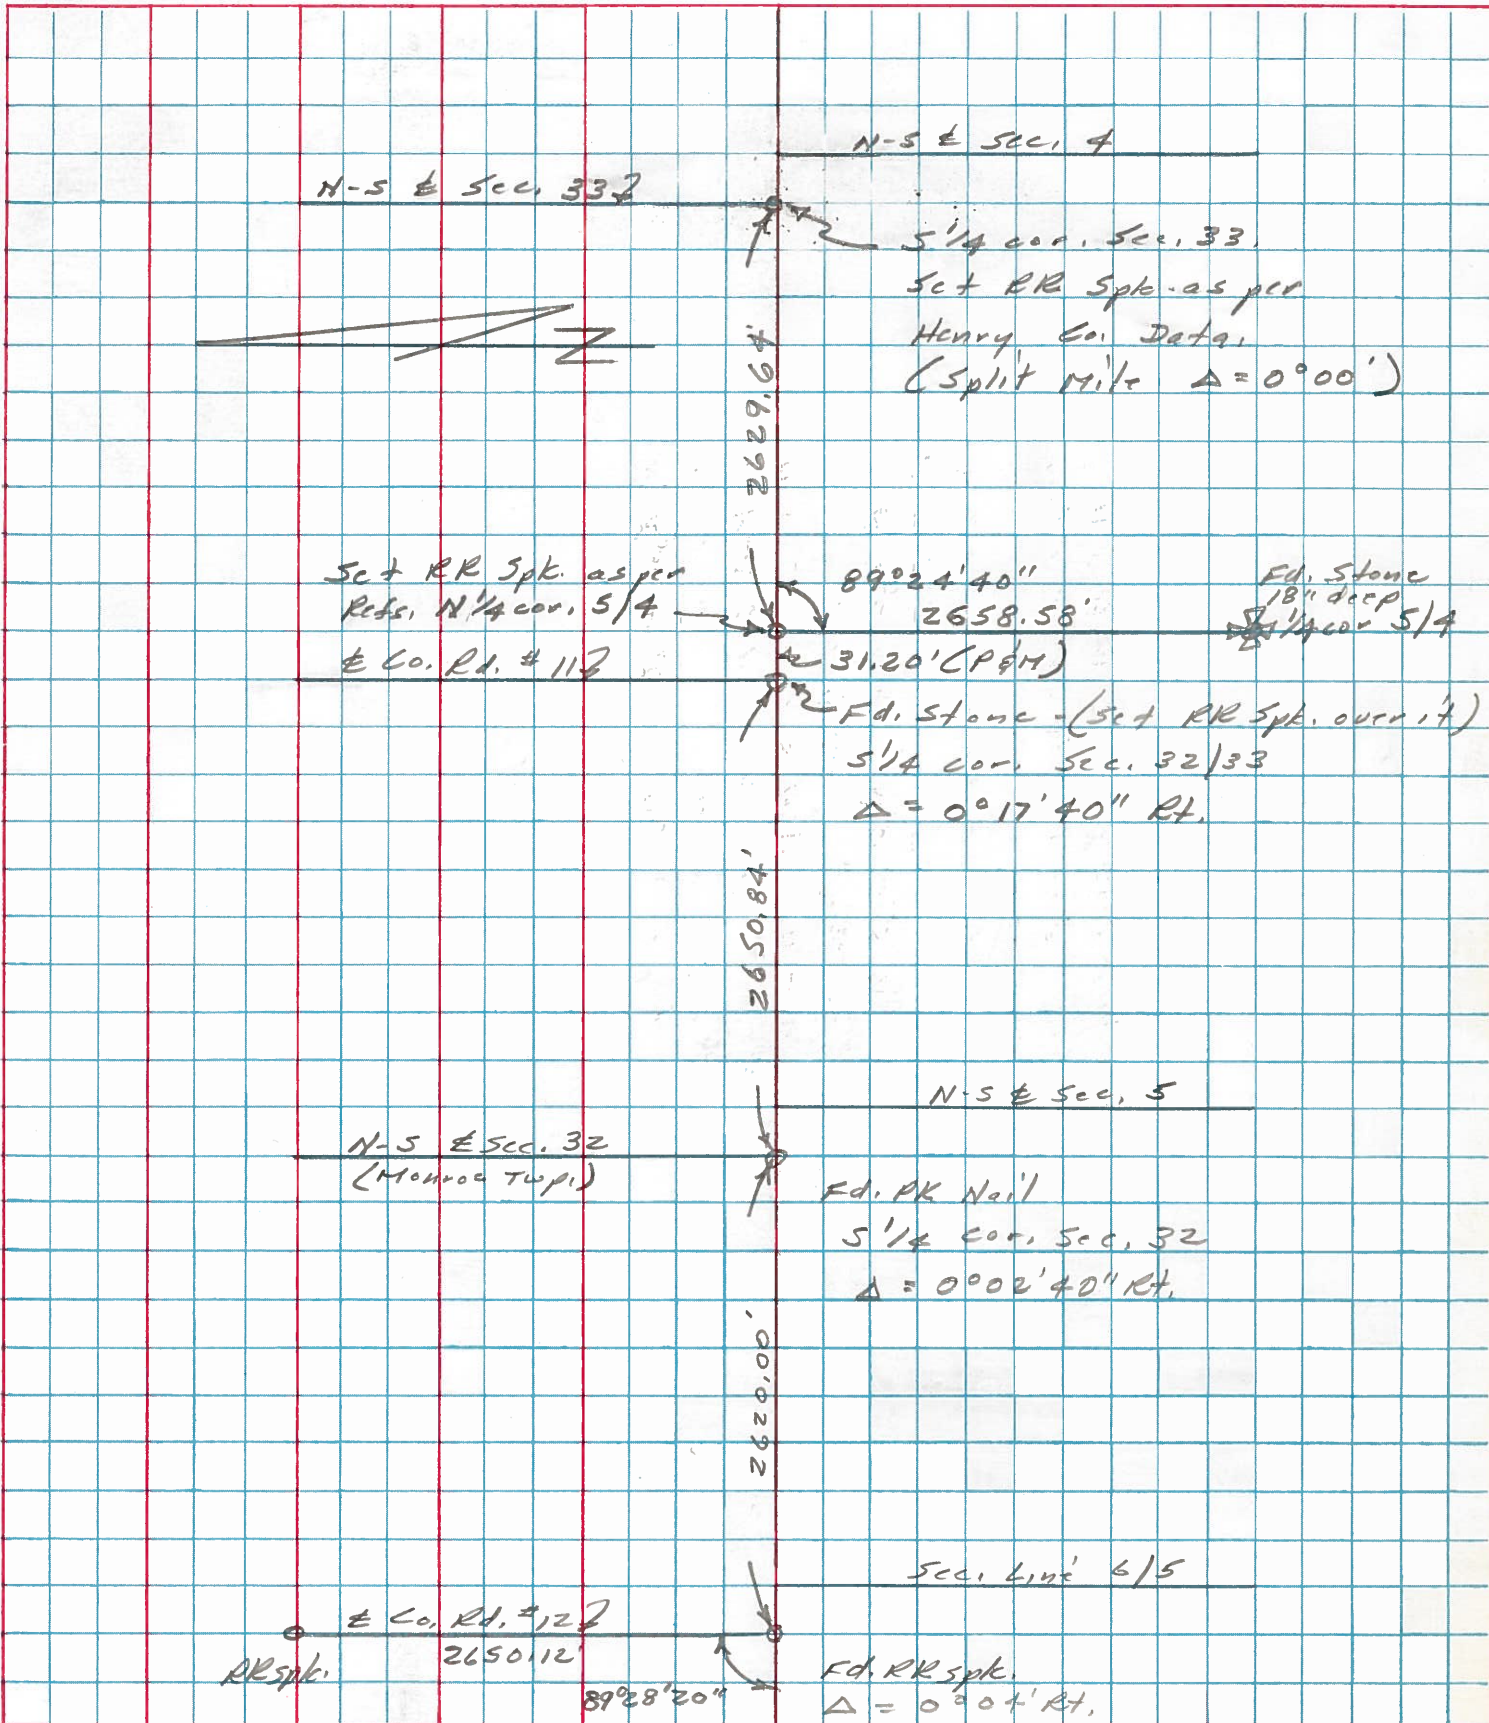 N-S ℄ Sec. 4
N-S ℄ Sec. 33
S 1/4 cor. Sec. 33.
Set RR Spk. as per
Henry Co. Data.
(Split Mile Δ = 0°00')
N
2629.64'
Set RR Spk. as per
Refs. N 1/4 cor. 5/4
89°24'40"
2658.58'
Fd. Stone
18" deep
1/4 cor 5/4
℄ Co. Rd. # 11
31.20' (P&M)
Fd. Stone - (Set RR Spk. over it)
S 1/4 cor. Sec. 32/33
Δ = 0°17'40" Rt.
2650.84'
N-S ℄ Sec. 5
N-S ℄ Sec. 32
(Monroe Twp.)
Fd. PK Nail
S 1/4 cor. Sec. 32
Δ = 0°02'40" Rt.
2620.00'
Sec. Line 6/5
℄ Co. Rd. # 12
2650.12'
RR spk.
89°28'20"
Fd. RR spk.
Δ = Rt.